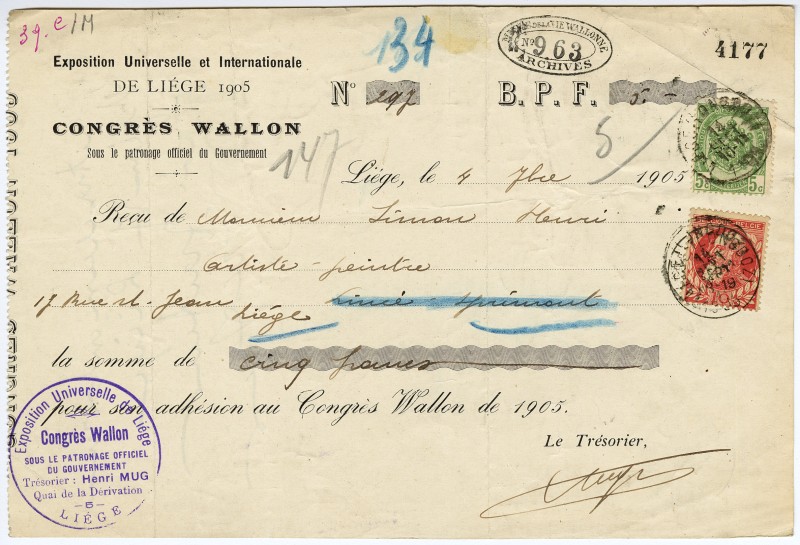 39.e/M
134
MUSÉE DE LA VIE WALLONNE
No 963
ARCHIVES
4177
Exposition Universelle et Internationale
DE LIÉGE 1905
CONGRÈS WALLON
Sous le patronage officiel du Gouvernement
No 297 B. P. F. 5.-
147
5
Liège, le 4 7bre 1905
5c 5c
BELGIE
Reçu de Monsieur Simon Henri
artiste-peintre
17 Rue St. Jean Liége Lincé-Sprimont
la somme de cinq francs
pour son adhésion au Congrès Wallon de 1905.
Le Trésorier,
Exposition Universelle de Liége
Congrès Wallon
SOUS LE PATRONAGE OFFICIEL
DU GOUVERNEMENT
Trésorier : Henri MUG
Quai de la Dérivation
5
LIÉGE